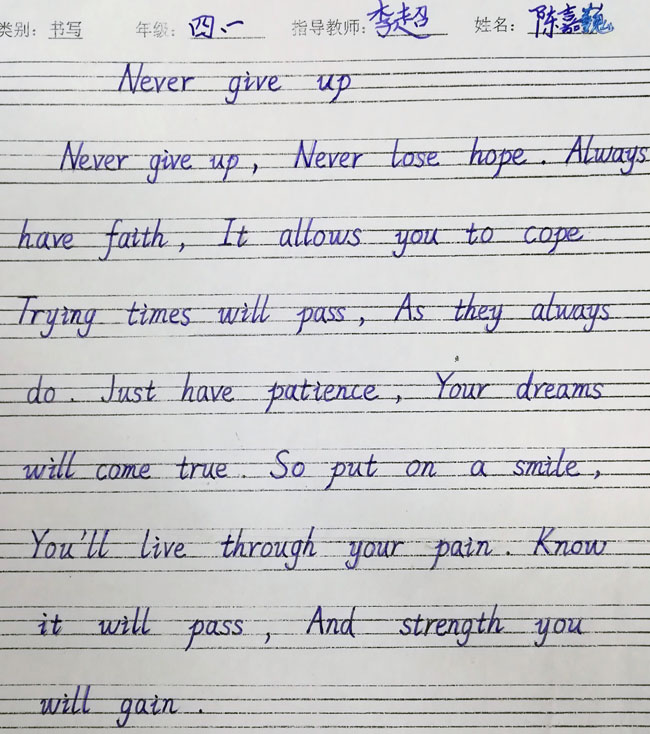 类别：书写 年级：四、一 指导教师：李超 姓名：陈嘉巍
Never give up
Never give up, Never lose hope. Always
have faith, It allows you to cope
Trying times will pass, As they always
do. Just have patience, Your dreams
will come true. So put on a smile,
You'll live through your pain. Know
it will pass, And strength you
will gain.